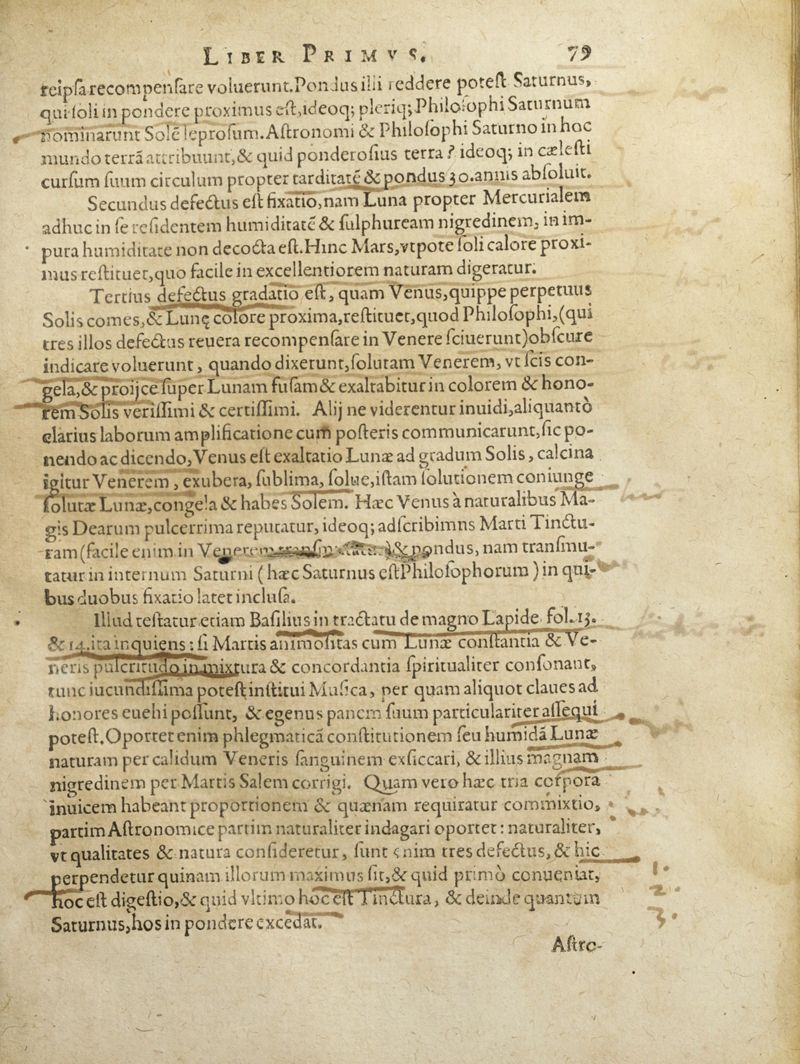 LIBER PRIMVS. 79
reipsa recompensare voluerunt. Pondus illi reddere potest Saturnus,
qui soli in pondere proximus est, ideoq; pleriq; Philosophi Saturnum
nominarunt Solē leprosum. Astronomi & Philosophi Saturno in hoc
mundo terrā attribuunt, & quid ponderosius terra? ideoq; in cælesti
cursum suum circulum propter tarditatē & pondus 30. annis absoluit.
Secundus defectus est fixatio, nam Luna propter Mercurialem
adhuc in se residentem humiditatē & sulphuream nigredinem, in im-
pura humiditate non decocta est. Hinc Mars, vtpote soli calore proxi-
mus restituet, quo facile in excellentiorem naturam digeratur.
Tertius defectus gradatio est, quam Venus, quippe perpetuus
Solis comes, & Lunę colore proxima, restituet, quod Philosophi, (qui
tres illos defectus reuera recompensare in Venere sciuerunt) obscure
indicare voluerunt, quando dixerunt, solutam Venerem, vt scis con-
gela, & proijce super Lunam fusam & exaltabitur in colorem & hono-
rem Solis verissimi & certissimi. Alij ne viderentur inuidi, aliquantò
clarius laborum amplificatione cum posteris communicarunt, sic po-
nendo ac dicendo, Venus est exaltatio Lunæ ad gradum Solis, calcina
igitur Venerem, exubera, sublima, solue, istam solutionem coniunge
solutæ Lunæ, congela & habes Solem. Hæc Venus à naturalibus Ma-
gis Dearum pulcerrima reputatur, ideoq; adscribimns Marti Tinctu-
ram (facile enim in Venerem & pondus, nam transmu-
tatur in internum Saturni (hæc Saturnus est Philosophorum) in qui-
bus duobus fixatio latet inclusa.
Illud testatur etiam Basilius in tractatu de magno Lapide fol. 13.
& 14. ita inquiens: si Martis animositas cum Lunæ constantia & Ve-
neris pulcritudo in mixtura & concordantia spiritualiter consonant,
tunc iucundissima potest institui Musica, per quam aliquot claues ad
honores euehi possunt, & egenus panem suum particulariter assequi
potest. Oportet enim phlegmaticā constitutionem seu humidā Lunæ
naturam per calidum Veneris sanguinem exsiccari, & illius magnam
nigredinem per Martis Salem corrigi. Quam vero hæc tria corpora
inuicem habeant proportionem & quænam requiratur commixtio,
partim Astronomice partim naturaliter indagari oportet: naturaliter,
vt qualitates & natura consideretur, sunt enim tres defectus, & hic
perpendetur quinam illorum maximus sit, & quid primò conueniat,
hoc est digestio, & quid vltimo hoc est Tinctura, & deinde quantum
Saturnus, hos in pondere excedat.
1.
2.
3.
Astro-